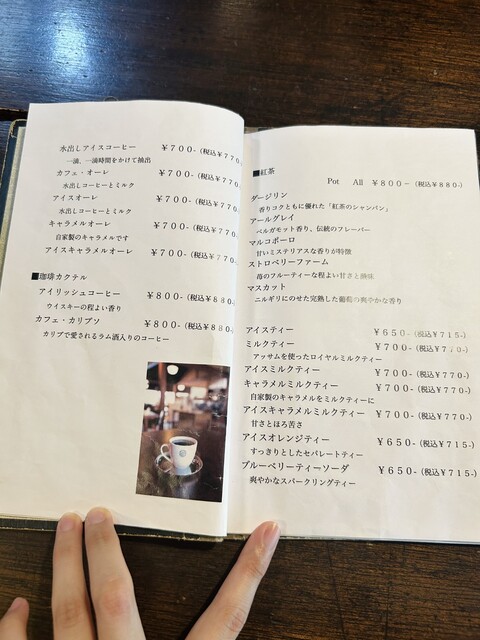 水出しアイスコーヒー ￥７００-（税込￥７７０
一滴、一滴時間をかけて抽出
カフェ・オーレ ￥７００-（税込￥７７０
水出しコーヒーとミルク
アイスオーレ ￥７００-（税込￥７７０
水出しコーヒーとミルク
キャラメルオーレ ￥７００-（税込￥７７０
自家製のキャラメルです
アイスキャラメルオーレ ￥７００-（税込￥７７０
■珈琲カクテル
アイリッシュコーヒー ￥８００-（税込￥８８０
ウイスキーの程よい香り
カフェ・カリプソ ￥８００-（税込￥８８０
カリブで愛されるラム酒入りのコーヒー
■紅茶
Pot All ￥８００－（税込￥８８０-）
ダージリン
香りコクともに優れた「紅茶のシャンパン」
アールグレイ
ベルガモット香り、伝統のフレーバー
マルコポーロ
甘いミステリアスな香りが特徴
ストロベリーファーム
苺のフルーティーな程よい甘さと酸味
マスカット
ニルギリにのせた完熟した葡萄の爽やかな香り
アイスティー ￥６５０-（税込￥７１５-）
ミルクティー ￥７００-（税込￥７７０-）
アッサムを使ったロイヤルミルクティー
アイスミルクティー ￥７００-（税込￥７７０-）
キャラメルミルクティー ￥７００-（税込￥７７０-）
自家製のキャラメルをミルクティーに
アイスキャラメルミルクティー ￥７００-（税込￥７７０-）
甘さとほろ苦さ
アイスオレンジティー ￥６５０-（税込￥７１５-）
すっきりとしたセパレートティー
ブルーベリーティーソーダ ￥６５０-（税込￥７１５-）
爽やかなスパークリングティー